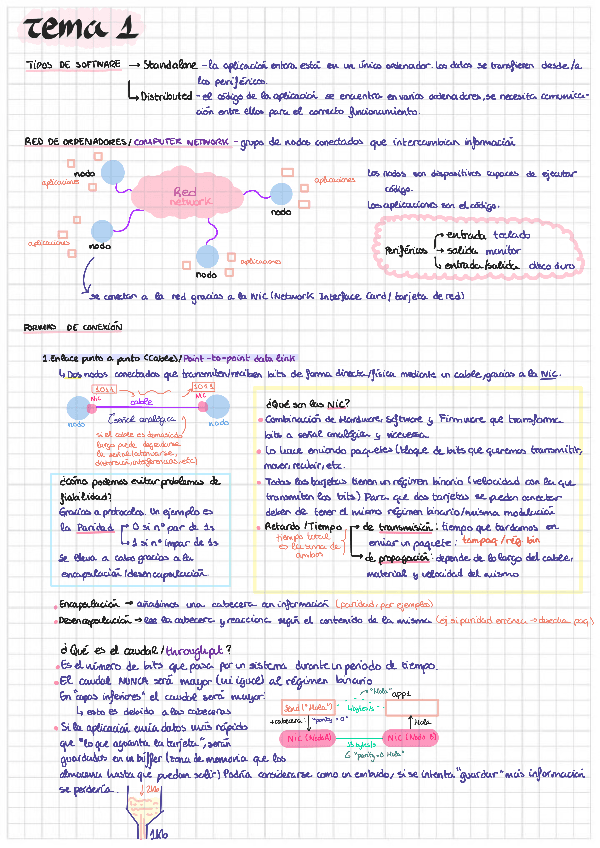 Tema 1
TIPOS DE SOFTWARE → Standalone - la aplicación entera está en un único ordenador. Los datos se transfieren desde/a
los periféricos.
Distributed - el código de la aplicación se encuentra en varios ordenadores, se necesita comunica-
ción entre ellos para el correcto funcionamiento.
RED DE ORDENADORES/COMPUTER NETWORK - grupo de nodos conectados que intercambian información
nodo
aplicaciones
Red
network
aplicaciones
nodo
aplicaciones
nodo
aplicaciones
nodo
Los nodos son dispositivos capaces de ejecutar
código.
Las aplicaciones son el código.
Periféricos → entrada teclado
→ salida monitor
→ entrada/salida disco duro
se conectan a la red gracias a la NIC (Network Interface Card/tarjeta de red)
FORMAS DE CONEXIÓN
1. Enlace punto a punto (Cable)/Point-to-point data link
↳ Dos nodos conectados que transmiten/reciben bits de forma directa/física mediante un cable, gracias a la NIC.
1011
1011
NIC
cable
NIC
nodo
(señal analógica)
nodo
si el cable es demasiado
largo puede degradarse
la señal (atenuarse,
distorsión, interferencias, etc)
¿Qué son las NIC?
• Combinación de Hardware, Software y Firmware que transforma
bits a señal analógica y viceversa.
• Lo hace enviando paquetes (bloque de bits que queremos transmitir,
mover, recibir, etc.
• Todas las tarjetas tienen un régimen binario (velocidad con la que
transmiten los bits) Para que dos tarjetas se puedan conectar
deben de tener el mismo régimen binario/misma modulación
• Retardo/Tiempo
tiempo total
es la suma de
ambos
→ de transmisión: tiempo que tardamos en
enviar un paquete: tampaq/rég bin
→ de propagación: depende de lo largo del cable,
material y velocidad del mismo
¿Cómo podemos evitar problemas de
fiabilidad?
Gracias a protocolos. Un ejemplo es
la Paridad → 0 si nº par de 1s
→ 1 si nº impar de 1s
Se lleva a cabo gracias a la
encapsulación/desencapsulación
• Encapsulación → añadimos una cabecera con información (paridad, por ejemplo)
• Desencapsulación → lee la cabecera y reacciona según el contenido de la misma (ej si paridad errónea → desecha paq)
¿Qué es el caudal/throughput?
• Es el número de bits que pasa por un sistema durante un periodo de tiempo.
• El caudal NUNCA será mayor (ni igual) al régimen binario
En "capas inferiores" el caudal será mayor:
↳ esto es debido a las cabeceras
• Si la aplicación envía datos más rápido
que "lo que aguanta la tarjeta", serán
guardados en un búffer (zona de memoria que los
almacena hasta que puedan salir) Podría considerarse como un embudo, si se intenta "guardar" más información
se perdería.
"Hola" app1
send("Hola")
4bytes/s
+cabecera "parity=0"
Hola
NIC (Nodo A)
NIC (Nodo B)
"parity=0 Hola"
2Kb
1Kb